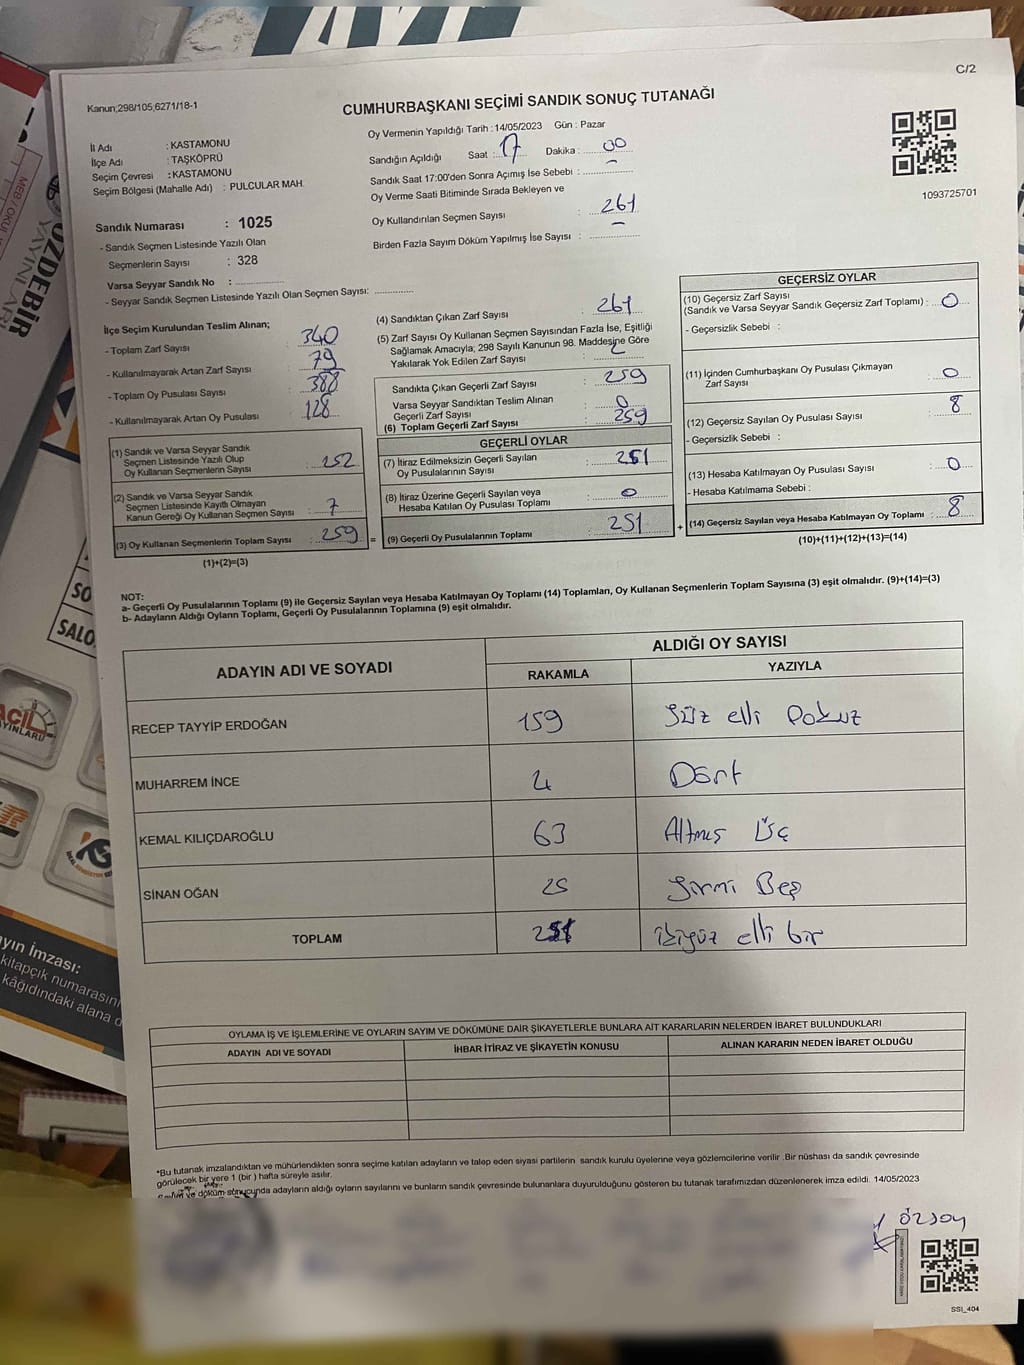 C/2
Kanun;298/105,6271/18-1
CUMHURBAŞKANI SEÇİMİ SANDIK SONUÇ TUTANAĞI
İl Adı : KASTAMONU
İlçe Adı : TAŞKÖPRÜ
Seçim Çevresi : KASTAMONU
Seçim Bölgesi (Mahalle Adı) : PULCULAR MAH.
Sandık Numarası : 1025
- Sandık Seçmen Listesinde Yazılı Olan
Seçmenlerin Sayısı : 328
Varsa Seyyar Sandık No :
- Seyyar Sandık Seçmen Listesinde Yazılı Olan Seçmen Sayısı:
Oy Vermenin Yapıldığı Tarih : 14/05/2023 Gün : Pazar
Sandığın Açıldığı Saat : 17 Dakika : 00
Sandık Saat 17:00'den Sonra Açımış İse Sebebi : -
Oy Verme Saati Bitiminde Sırada Bekleyen ve
Oy Kullandırılan Seçmen Sayısı : 261
Birden Fazla Sayım Döküm Yapılmış İse Sayısı : -
1093725701
İlçe Seçim Kurulundan Teslim Alınan;
- Toplam Zarf Sayısı : 340
- Kullanılmayarak Artan Zarf Sayısı : 79
- Toplam Oy Pusulası Sayısı : 388
- Kullanılmayarak Artan Oy Pusulası : 128
(1) Sandık ve Varsa Seyyar Sandık
Seçmen Listesinde Yazılı Olup
Oy Kullanan Seçmenlerin Sayısı : 252
(2) Sandık ve Varsa Seyyar Sandık
Seçmen Listesinde Kayıtlı Olmayan
Kanun Gereği Oy Kullanan Seçmen Sayısı : 7
(3) Oy Kullanan Seçmenlerin Toplam Sayısı : 259
(1)+(2)=(3)
(4) Sandıktan Çıkan Zarf Sayısı : 261
(5) Zarf Sayısı Oy Kullanan Seçmen Sayısından Fazla İse, Eşitliği
Sağlamak Amacıyla; 298 Sayılı Kanunun 98. Maddesine Göre
Yakılarak Yok Edilen Zarf Sayısı : 2
Sandıkta Çıkan Geçerli Zarf Sayısı : 259
Varsa Seyyar Sandıktan Teslim Alınan
Geçerli Zarf Sayısı : 0
(6) Toplam Geçerli Zarf Sayısı : 259
GEÇERLİ OYLAR
(7) İtiraz Edilmeksizin Geçerli Sayılan
Oy Pusulalarının Sayısı : 251
(8) İtiraz Üzerine Geçerli Sayılan veya
Hesaba Katılan Oy Pusulası Toplamı : 0
= (9) Geçerli Oy Pusulalarının Toplamı : 251 +
GEÇERSİZ OYLAR
(10) Geçersiz Zarf Sayısı
(Sandık ve Varsa Seyyar Sandık Geçersiz Zarf Toplamı) : 0
- Geçersizlik Sebebi :
(11) İçinden Cumhurbaşkanı Oy Pusulası Çıkmayan
Zarf Sayısı : 0
(12) Geçersiz Sayılan Oy Pusulası Sayısı : 8
- Geçersizlik Sebebi :
(13) Hesaba Katılmayan Oy Pusulası Sayısı : 0
- Hesaba Katılmama Sebebi :
(14) Geçersiz Sayılan veya Hesaba Katılmayan Oy Toplamı : 8
(10)+(11)+(12)+(13)=(14)
NOT:
a- Geçerli Oy Pusulalarının Toplamı (9) ile Geçersiz Sayılan veya Hesaba Katılmayan Oy Toplamı (14) Toplamları, Oy Kullanan Seçmenlerin Toplam Sayısına (3) eşit olmalıdır. (9)+(14)=(3)
b- Adayların Aldığı Oyların Toplamı, Geçerli Oy Pusulalarının Toplamına (9) eşit olmalıdır.
ADAYIN ADI VE SOYADI ALDIĞI OY SAYISI
RAKAMLA YAZIYLA
RECEP TAYYİP ERDOĞAN 159 Yüz elli Dokuz
MUHARREM İNCE 4 Dört
KEMAL KILIÇDAROĞLU 63 Altmış Üç
SİNAN OĞAN 25 Yirmi Beş
TOPLAM 251 ikiyüz elli bir
OYLAMA İŞ VE İŞLEMLERİNE VE OYLARIN SAYIM VE DÖKÜMÜNE DAİR ŞİKAYETLERLE BUNLARA AİT KARARLARIN NELERDEN İBARET BULUNDUKLARI
ADAYIN ADI VE SOYADI İHBAR İTİRAZ VE ŞİKAYETİN KONUSU ALINAN KARARIN NEDEN İBARET OLDUĞU
*Bu tutanak imzalandıktan ve mühürlendikten sonra seçime katılan adayların ve talep eden siyasi partilerin sandık kurulu üyelerine veya gözlemcilerine verilir .Bir nüshası da sandık çevresinde
görülecek bir yere 1 (bir ) hafta süreyle asılır.
ve döküm sonucunda adayların aldığı oyların sayılarını ve bunların sandık çevresinde bulunanlara duyurulduğunu gösteren bu tutanak tarafımızdan düzenlenerek imza edildi. 14/05/2023
ÖZSOY
SSI_404
ÖZDEBİR
YAYINLARI
MEB / OKUL
SO
SALO
AÇIL
YAYINLARI
yın İmzası:
kitapçık numarasını
kâğıdındaki alana